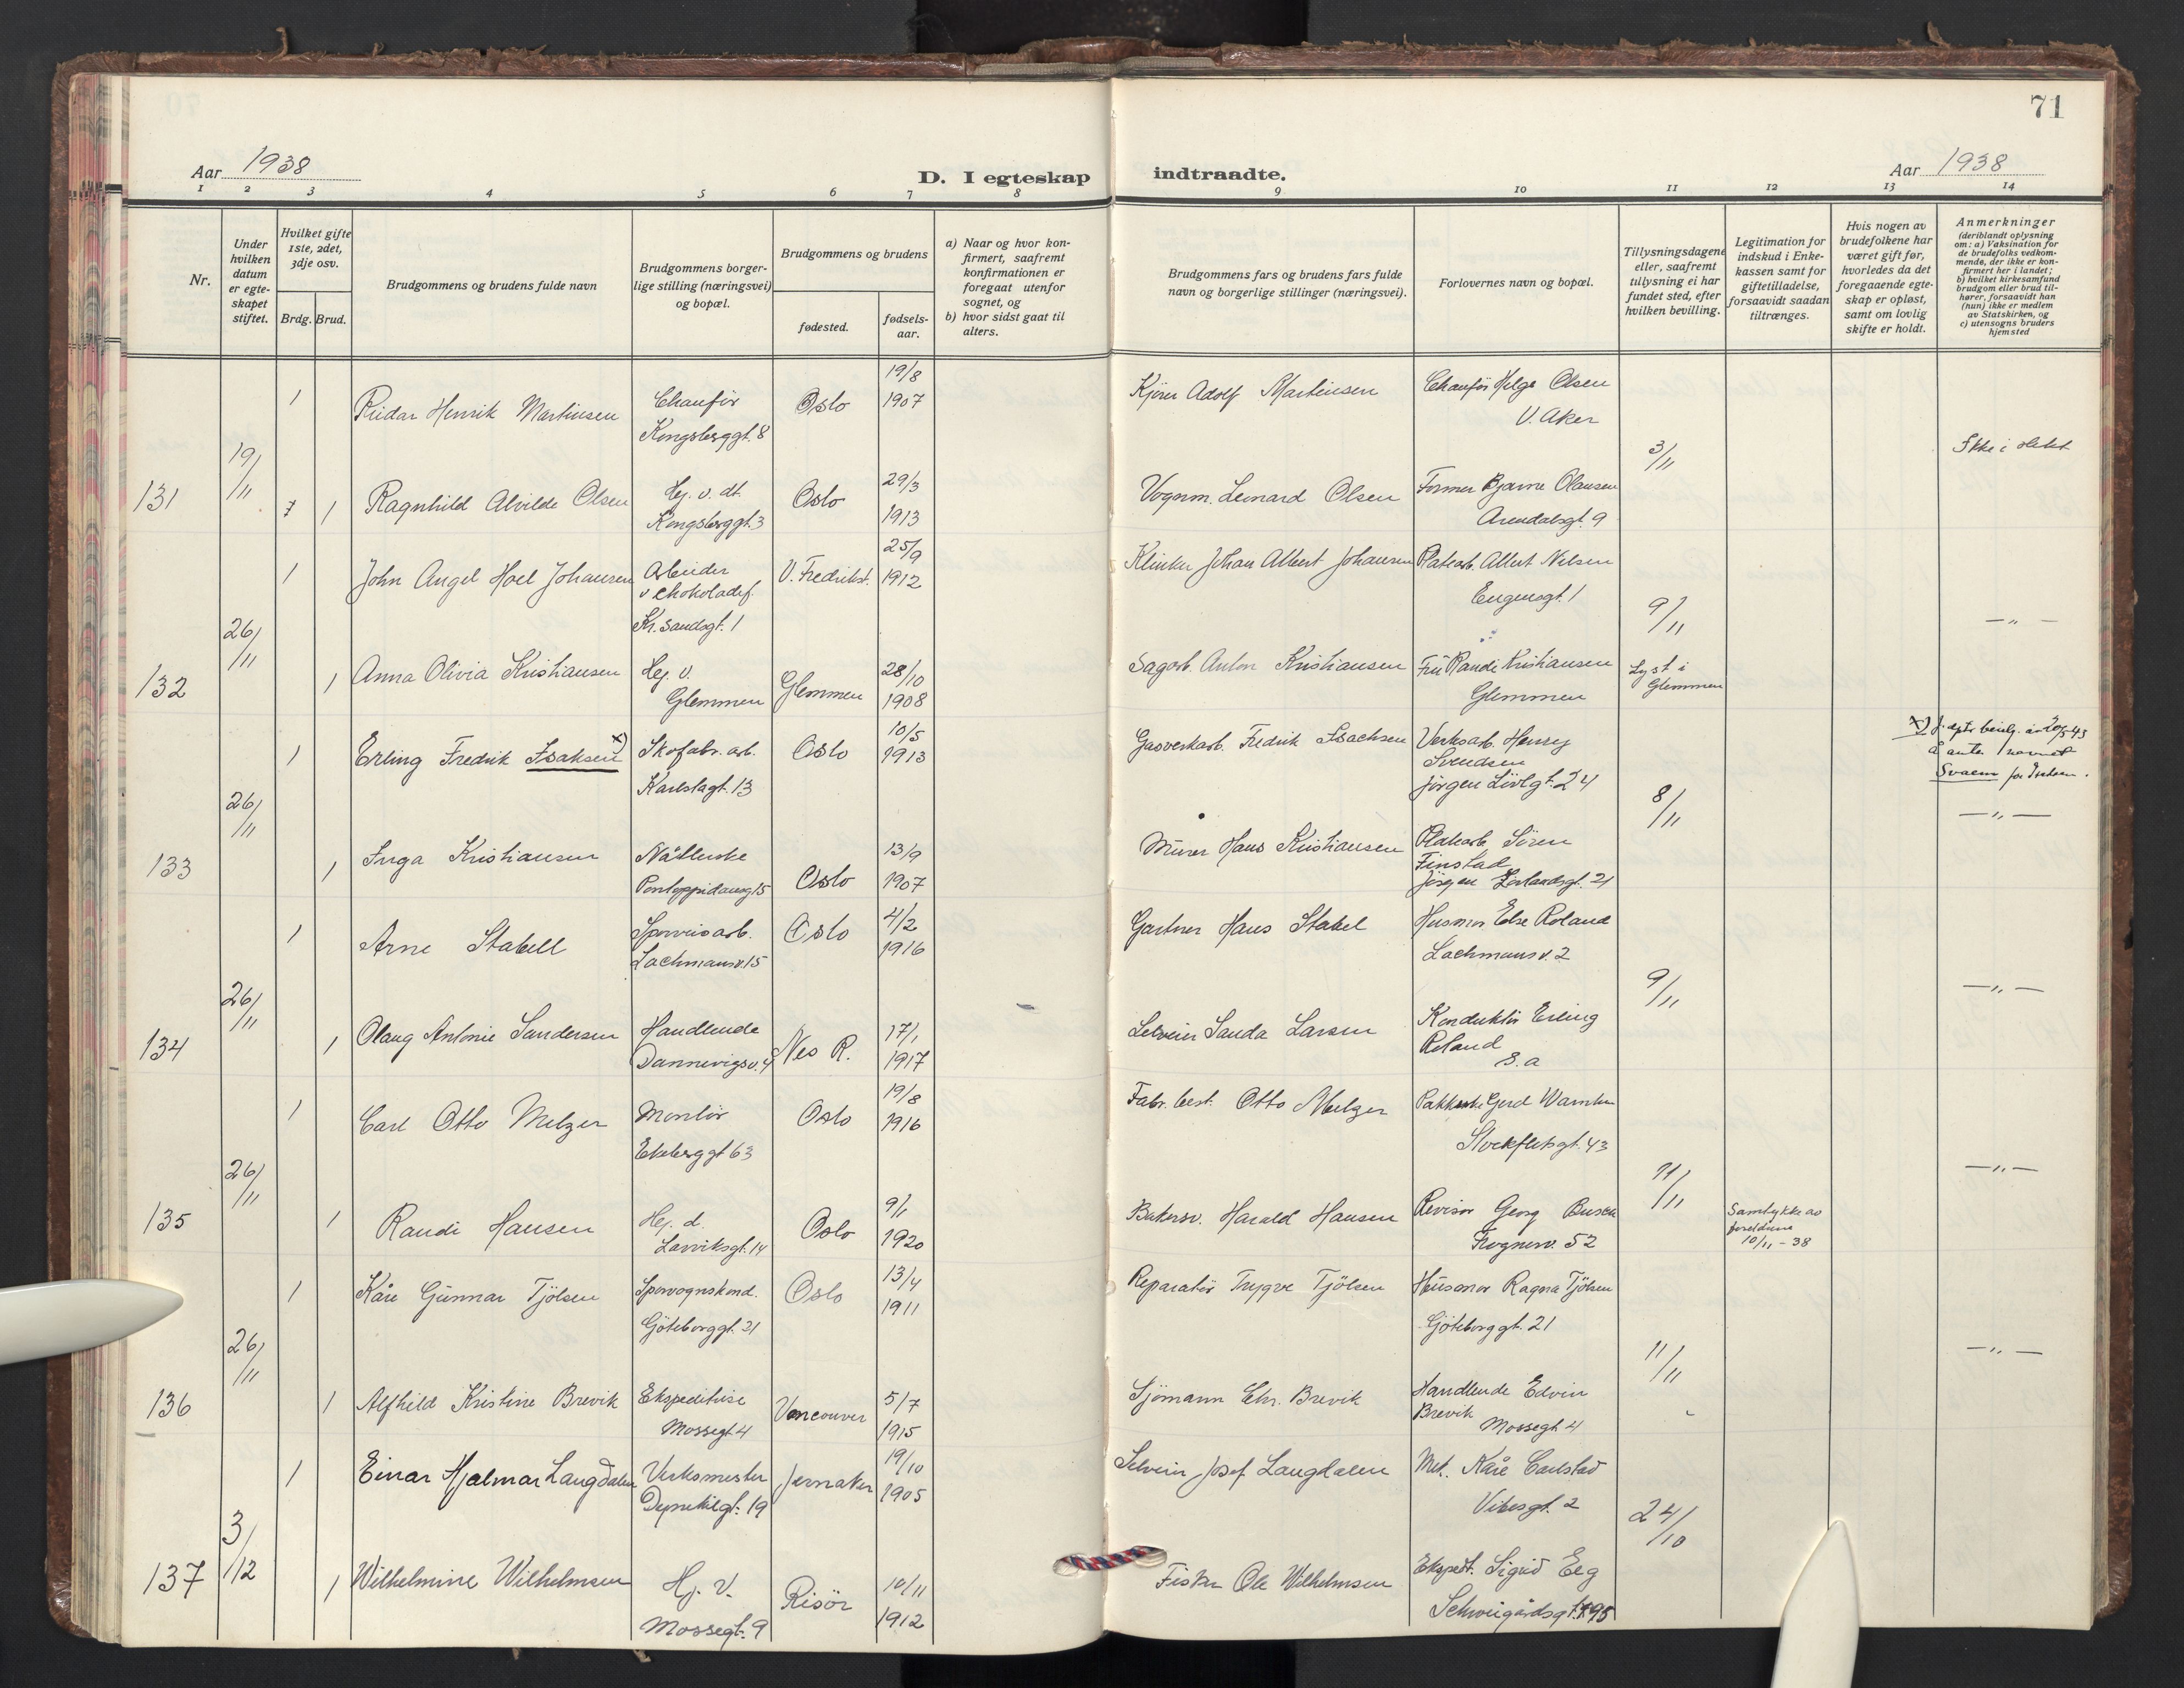 71
Aar 1938
D. I egteskap indtraadte.
Aar 1938
1 2 3 4 5 6 7 8 9 10 11 12 13 14
Nr.
Under hvilken datum er egteskapet stiftet.
Hvilket gifte 1ste, 2det, 3dje osv.
Brdg. Brud.
Brudgommens og brudens fulde navn
Brudgommens borgerlige stilling (næringsvei) og bopæl.
Brudgommens og brudens
fødested.
fødselsaar.
a) Naar og hvor konfirmert, saafremt konfirmationen er foregaat utenfor sognet, og
b) hvor sidst gaat til alters.
Brudgommens fars og brudens fars fulde navn og borgerlige stillinger (næringsvei).
Forlovernes navn og bopæl.
Tillysningsdagene eller, saafremt tillysning ei har fundet sted, efter hvilken bevilling.
Legitimation for indskud i Enkekassen samt for giftetilladelse, forsaavidt saadan tiltrænges.
Hvis nogen av brudefolkene har været gift før, hvorledes da det foregaaende egteskap er opløst, samt om lovlig skifte er holdt.
Anmerkninger
(deriblandt oplysning om: a) Vaksination for de brudefolks vedkommende, der ikke er konfirmert her i landet;
b) hvilket kirkesamfund brudgom eller brud tilhører, forsaavidt han (hun) ikke er medlem av Statskirken, og
c) utensogns bruders hjemsted
1 Reidar Henrik Martinsen Chaufför Kongsberggt. 8 Oslo 19/8 1907 Kjörer Adolf Martinsen Chaufför Helge Olsen V. Aker
131 19/11 1 Ragnhild Alvilde Olsen Hej. v. dt. Kongsberggt. 3 Oslo 29/3 1913 Vognm. Leonard Olsen Former Bjarne Olausen Arendalsgt. 9 3/11 Ikke i slekt
1 John Angel Hoel Johansen Arbeider v Chokoladef. Kr.sandsgt. 1 V. Fredrikst. 25/9 1912 Klinker Johan Albert Johansen Platearb. Albert Nilsen Eugensgt. 1
132 26/11 1 Anna Olivia Kristiansen Hej. v. Glemmen Glemmen 28/10 1908 Sagarb. Anton Kristiansen Frü Randi Kristiansen Glemmen 9/11 Lyst i Glemmen — „ —
1 Erling Fredrik Isaksen x) Skofabr. arb. Karlstagt. 13 Oslo 10/5 1913 Gasverkarb. Fredrik Isachsen Verksarb. Henry Svendsen Jörgen Lövlgt. 24
x) av 20/5-43 å anta navnet Svaem for
133 26/11 1 Inga Kristiansen Nåtlerske Pontoppidansg 15 Oslo 13/9 1907 Mürer Hans Kristiansen Platearb. Sören Finstad Jörgen Lövlandsgt. 21 8/11 — „ —
1 Arne Stabell Sporveisarb. Lachmansv. 15 Oslo 4/2 1916 Gartner Hans Stabel Husmor Else Roland Lachmansv. 2
134 26/11 1 Olaug Antonie Sandersen Handlende Dannevigsv. 4 Nes R. 17/1 1917 Selveier Sanda Larsen Konduktör Erling Roland S. a 9/11 — „ —
1 Carl Otto Melzer Montör Ekeberggt 63 Oslo 19/8 1916 Fabr. best. Otto Melzer Gerd Stockfletsgt. 43
135 26/11 1 Randi Hansen Hej. d. Larviksgt. 14 Oslo 9/1 1920 Bakersv. Harald Hansen Revisor Georg Frognerv. 52 11/11 Samtykke av foreldrene 10/11 - 38 — „ —
1 Kåre Günnar Tjölsen Sporvognskond. Göteborggt. 21 Oslo 13/4 1911 Reparatör Trygve Tjölsen Hüsmor Ragna Tjölsen Göteborggt. 21
136 26/11 1 Alfhild Kristine Brevik Ekspeditrise Mossegt. 4 Vancouver 5/7 1915 Sjömann Chr. Brevik Handlende Edvin Brevik Mossegt. 4 11/11 — „ —
1 Einar Hjalmar Langdalen Verksmester Dynekilgt. 19 Jevnaker 19/10 1905 Selveier Josef Langdalen Met. Kåre Carlstad Vibesgt. 2
137 3/12 1 Wilhelmine Wilhelmsen Hj. v. Mossegt. 9 Risör 10/11 1912 Fisker Ole Wilhelmsen Ekspedt. Sigrid Eeg Schweigårdsgt. 95 24/10